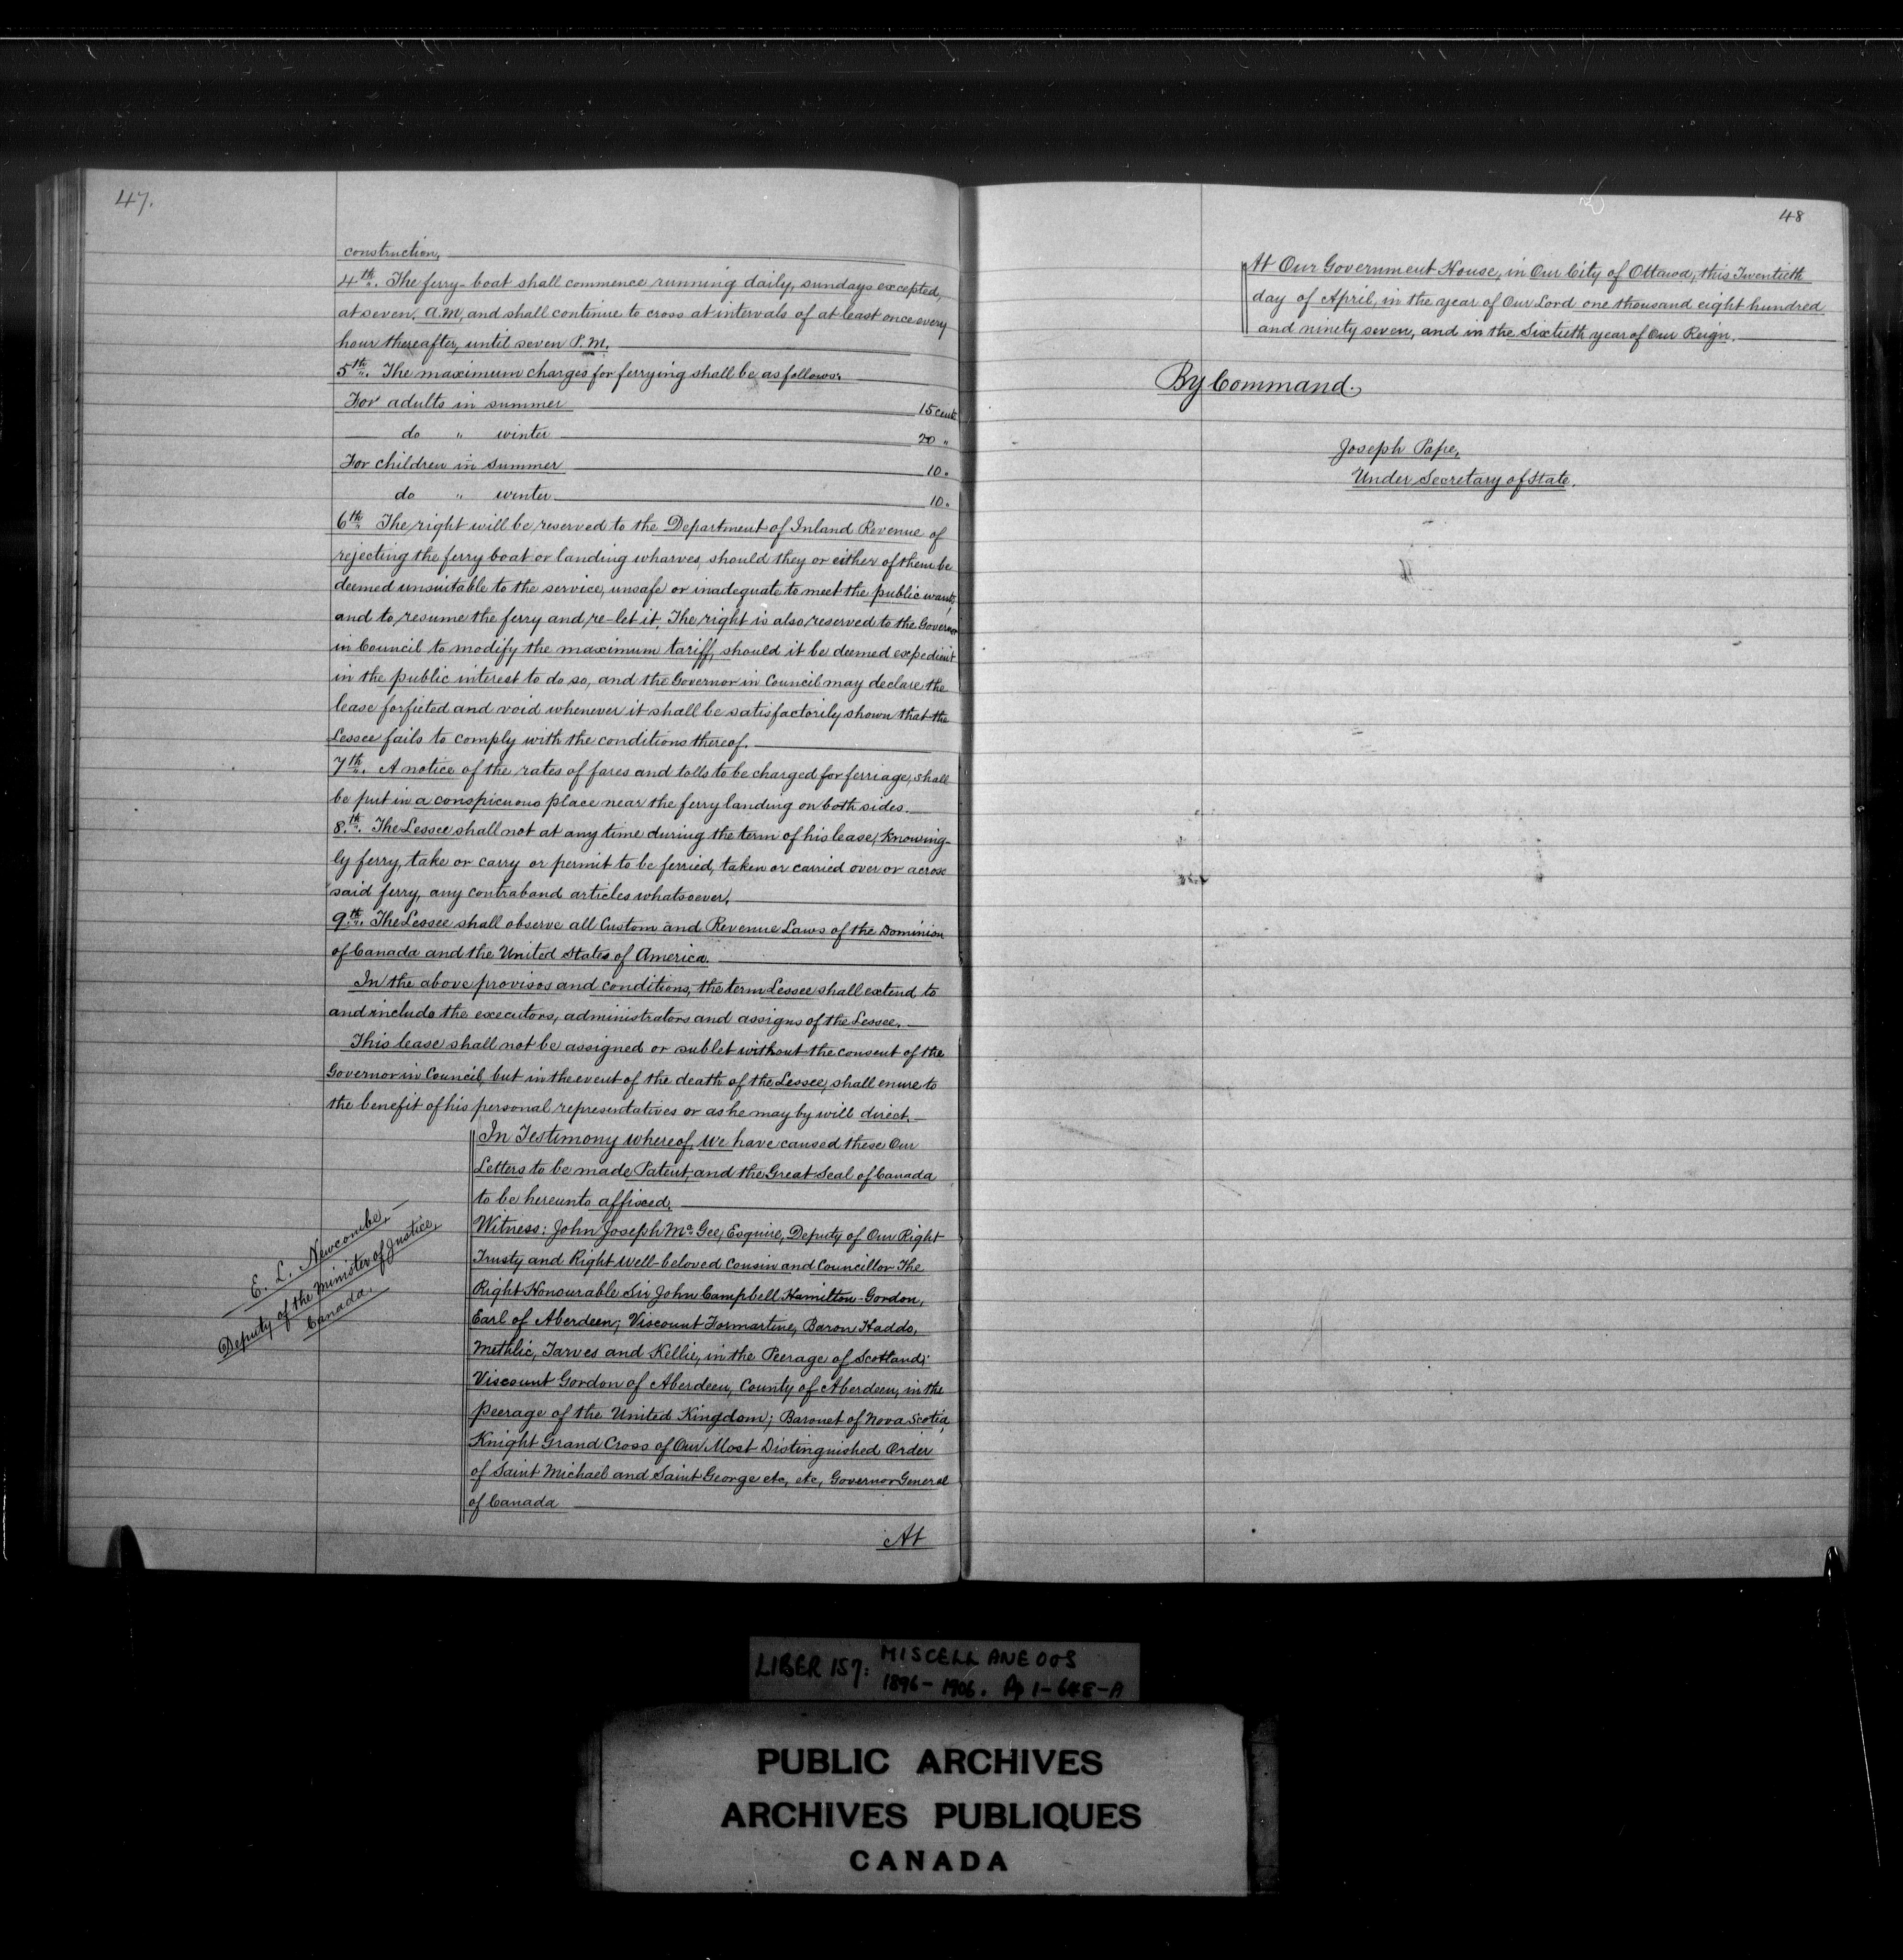 47.
construction,
4th. The ferry-boat shall commence running daily, sundays excepted,
at seven. a.m, and shall continue to cross at intervals of at least once every
hour thereafter, until seven P.M.
5th. The maximum charges for ferrying shall be as follows:
For adults in summer 15 cents
do " winter 20 "
For children in summer 10 "
do " winter 10 "
6th The right will be reserved to the Department of Inland Revenue of
rejecting the ferry boat or landing wharves, should they or either of them be
deemed unsuitable to the service, unsafe or inadequate to meet the public wants,
and to resume the ferry and re-let it. The right is also reserved to the Governor
in Council to modify the maximum tariff, should it be deemed expedient
in the public interest to do so, and the Governor in Council may declare the
lease forfieted and void whenever it shall be satisfactorily shown that the
Lessee fails to comply with the conditions thereof.
7th. A notice of the rates of fares and tolls to be charged for ferriage, shall
be put in a conspicuous place near the ferry landing on both sides.
8th. The Lessee shall not at any time during the term of his lease, knowing-
ly ferry, take or carry or permit to be ferried, taken or carried over or across
said ferry, any contraband articles whatsoever.
9th. The Lessee shall observe all Custom and Revenue Laws of the Dominion
of Canada and the United States of America.
In the above provisos and conditions, the term Lessee shall extend to
and include the executors, administrators and assigns of the Lessee.
This lease shall not be assigned or sublet without the consent of the
Governor in Council, but in the event of the death of the Lessee, shall enure to
the benefit of his personal representatives or as he may by will direct.
In Testimony whereof, We have caused these Our
Letters to be made Patent, and the Great Seal of Canada
to be hereunto affixed.
Witness: John Joseph McGee, Esquire, Deputy of Our Right
Trusty and Right Well-beloved Cousin and Councillor The
Right Honourable Sir John Campbell Hamilton-Gordon,
Earl of Aberdeen; Viscount Formartine, Baron Haddo,
Methlic, Tarves and Kellie, in the Peerage of Scotland;
Viscount Gordon of Aberdeen, County of Aberdeen, in the
peerage of the United Kingdom; Baronet of Nova Scotia,
Knight Grand Cross of Our Most Distinguished Order
of Saint Michael and Saint George etc, etc, Governor General
of Canada
At
E. L. Newcombe,
Deputy of the Minister of Justice,
Canada.
48
At Our Government House, in Our City of Ottawa, this Twentieth
day of April, in the year of Our Lord one thousand eight hundred
and ninety seven, and in the Sixtieth year of Our Reign.
By Command.
Joseph Pope,
Under Secretary of State.
LIBER 157: MISCELLANEOUS
1896-1906. Pp 1-648-A
PUBLIC ARCHIVES
ARCHIVES PUBLIQUES
CANADA